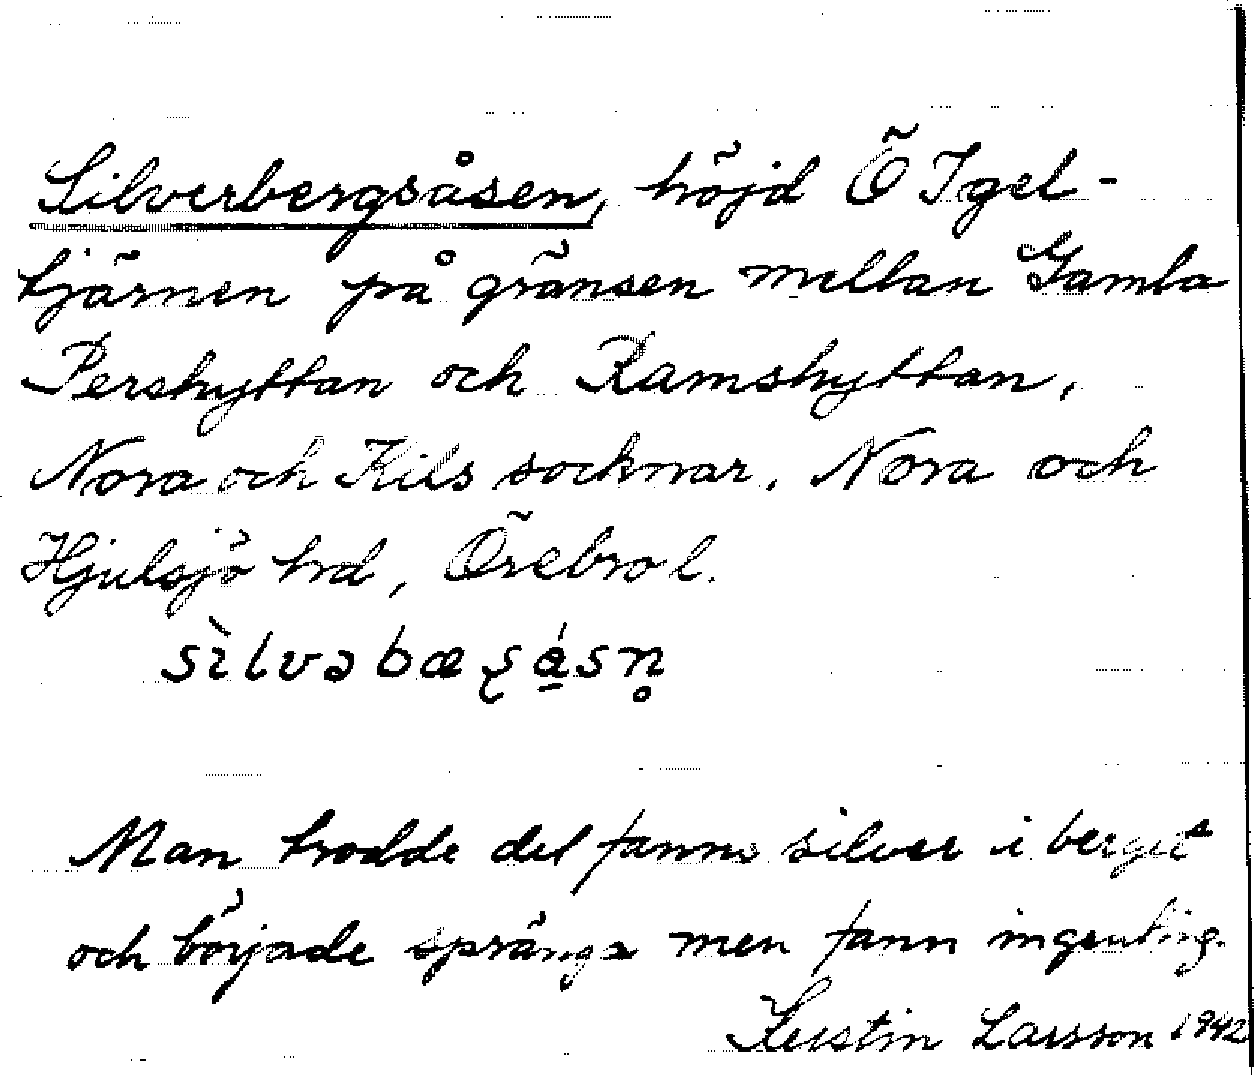 Silverbergsåsen, höjd Ö Igel-
tjärnen på gränsen mellan Gamla
Pershyttan och Ramshyttan,
Nora och Kils socknar, Nora och
Hjulsjö hrd, Örebro l.
sìlvəbæʂá̱sn̥
Man trodde det fanns silver i berget
och började spränga men fann ingenting.
Kerstin Larsson 1942